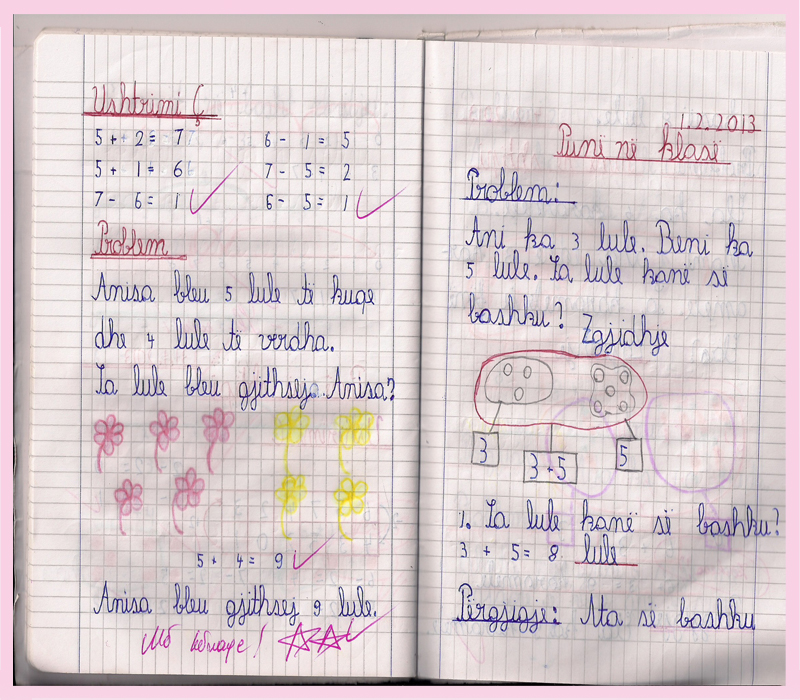 Ushtrimi Ç
5 + 2 = 7 6 - 1 = 5
5 + 1 = 6 7 - 5 = 2
7 - 6 = 1 6 - 5 = 1
Problem
Anisa bleu 5 lule të kuqe
dhe 4 lule të verdha.
Sa lule bleu gjithsej Anisa?
5 + 4 = 9
Anisa bleu gjithsej 9 lule.
1.2.2013
Punë në klasë
Problem:
Ani ka 3 lule. Beni ka
5 lule. Sa lule kanë së
bashku?
Zgjidhje
3
3 + 5
5
1. Sa lule kanë së bashku?
3 + 5 = 8 lule
Përgjigje: Ata së bashku